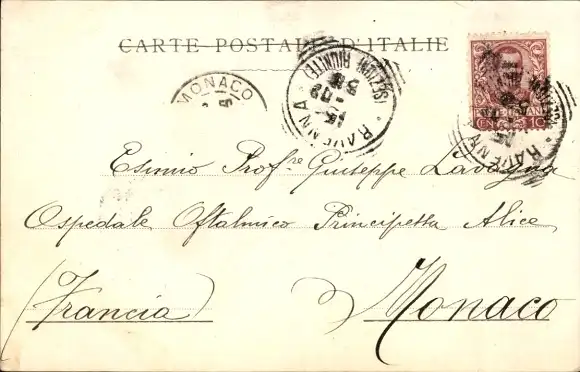 CARTE POSTALE D'ITALIE
MONACO
RAVENNA
(SEZIONI RIUNITE)
POSTE ITALIANE
CENT. 10
RAVENNA
Esimio Prof.re Giuseppe Lavagna
Ospedale Oftalmico Principessa Alice
(Francia) Monaco